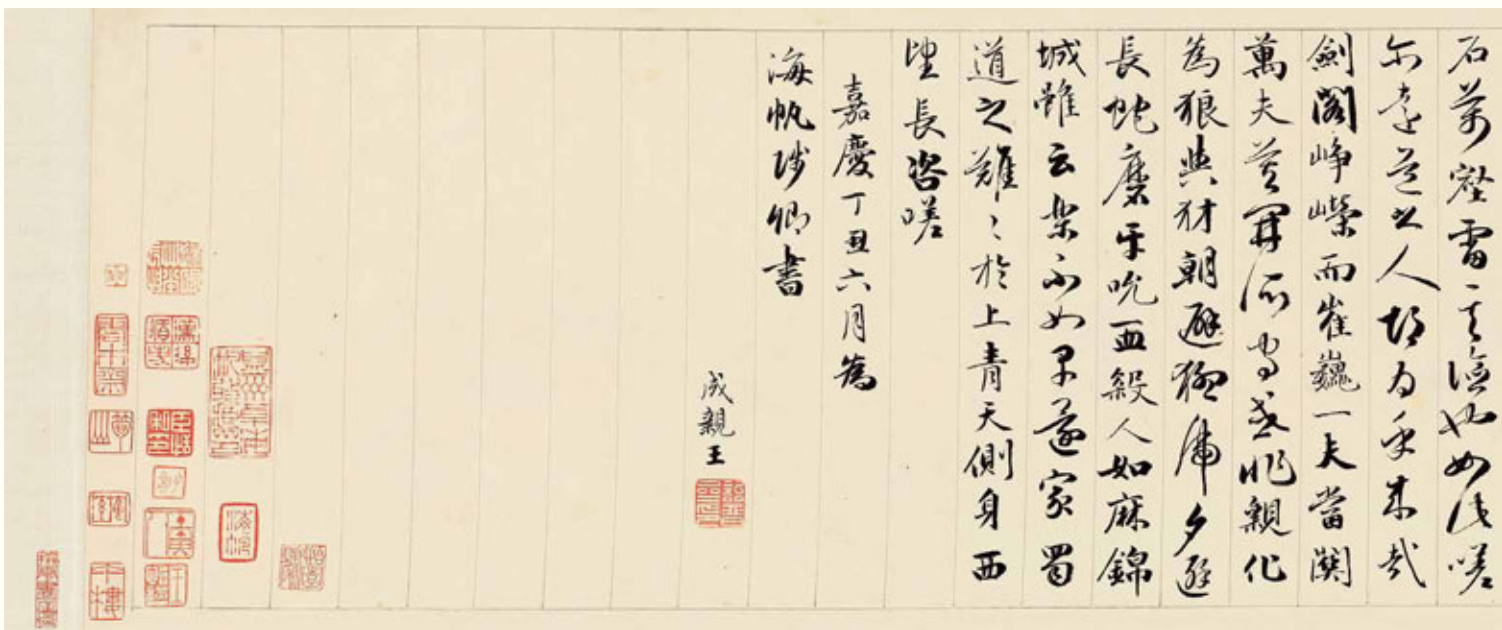 石萬壑雷其險也如此嗟
尔遠道之人胡为乎来哉
劍閣崢嶸而崔巍一夫當關
萬夫莫開所守或非親化
為狼與豺朝避猛虎夕避
長蛇磨牙吮血殺人如麻錦
城雖云樂不如早還家蜀
道之難〻於上青天側身西
望長咨嗟
嘉慶丁丑六月為
海帆侍卿書
成親王